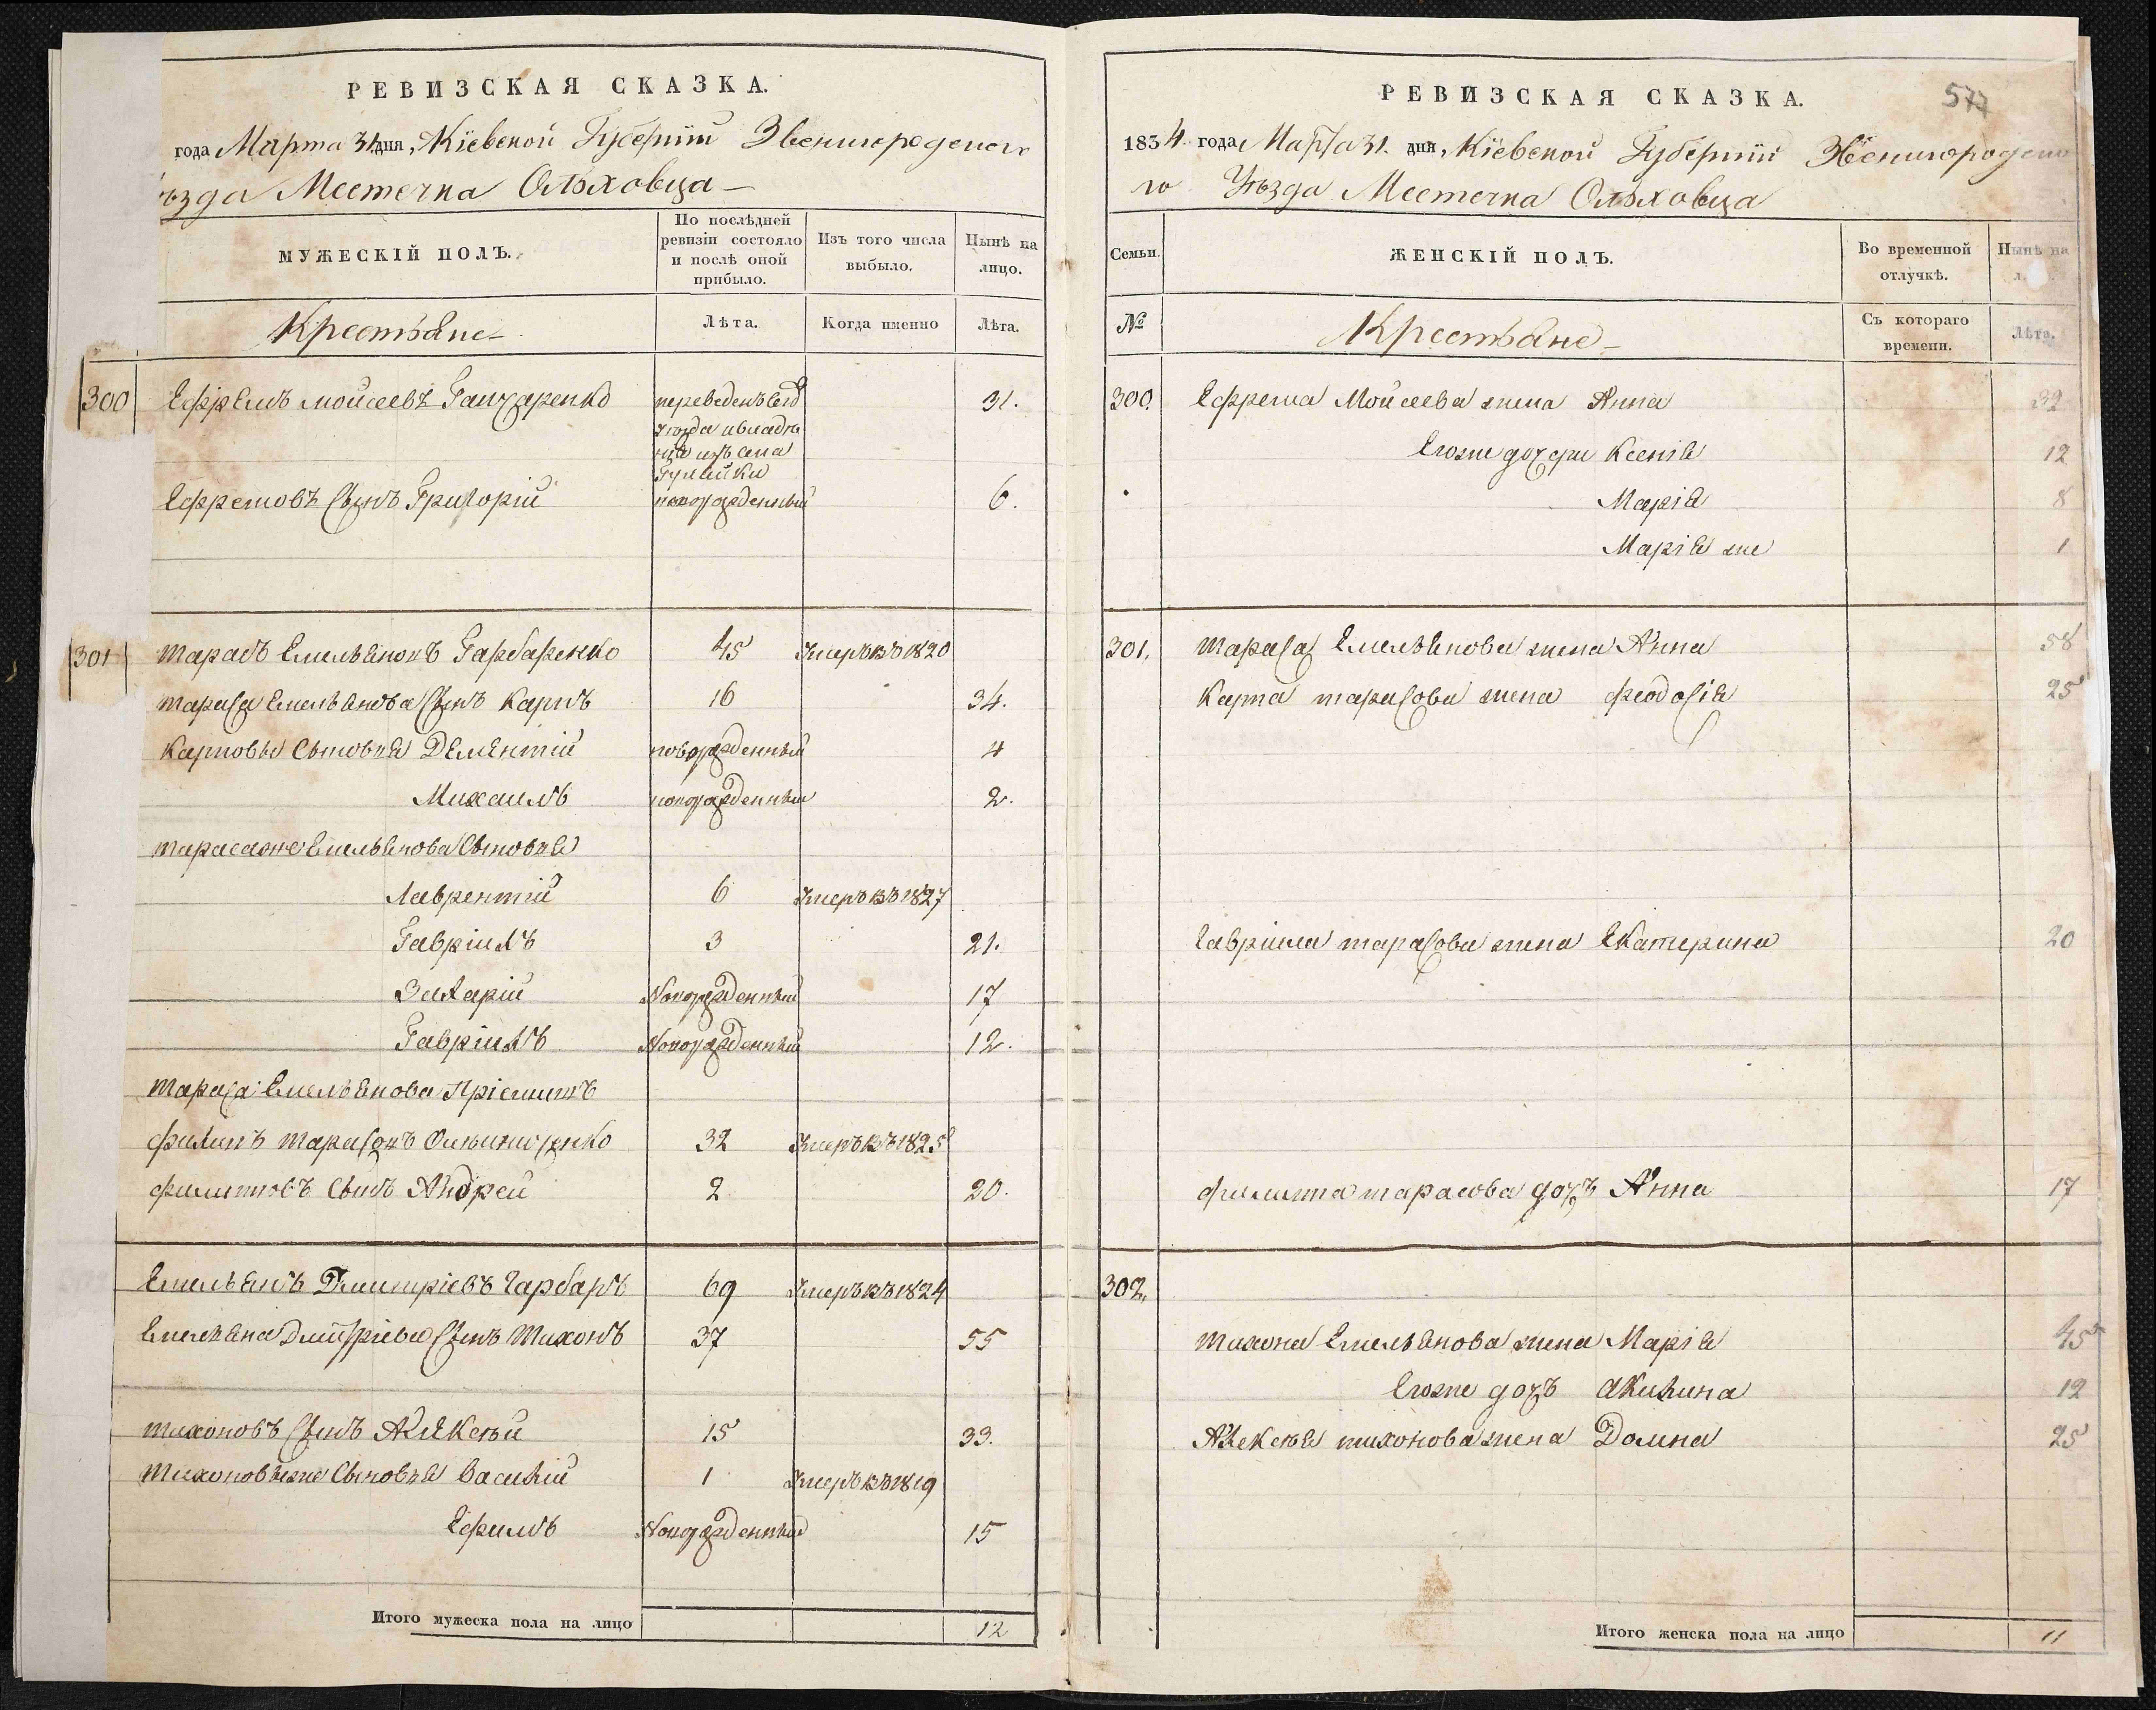 РЕВИЗСКАЯ СКАЗКА.
года Марта 31 дня, Кіевской Губерніи Звенигородскаго
ѣзда Местечка Ольховца
МУЖЕСКІЙ ПОЛЪ.
По послѣдней
ревизіи состояло
и послѣ оной
прибыло.
Изъ того числа
выбыло.
Нынѣ на
лицо.
Крестьяне
Лѣта.
Когда именно
Лѣта.
300 Ефремъ Мойсеевъ Ганчаренко переведенъ 31.
изъ села
Гулайки
Ефремовъ Сынъ Григорій новорожденный 6.
301 Тарасъ Емельяновъ Гарбаренко 45 Умеръ въ 1820
Тараса Емельянова Сынъ Карпъ 16 34.
Карповы Сыновья Дементій новорожденный 4
Михаилъ новорожденный 2.
Тараса же Емельянова Сыновья
Лаврентій 6 Умеръ въ 1827
Гавріилъ 3 21.
Захарій Новорожденный 17
Гавріилъ Новорожденный 12.
Тараса Емельянова Пріемышъ
Филипъ Тарасовъ 32 Умеръ въ 1825
Филиповъ Сынъ Андрей 2 20.
Емельянъ Дмитріевъ Гарбаръ 69 Умеръ въ 1824
Емельяна Дмитріева Сынъ Тихонъ 37 55
Тихоновъ Сынъ Алексѣй 15 33.
Тихоновы же Сыновья Василій 1 Умеръ въ 1819
Ефимъ Новорожденный 15
Итого мужеска пола на лицо 12
577
РЕВИЗСКАЯ СКАЗКА.
1834 года Марта 31. дня, Кіевской Губерніи Звенигородска
го Уѣзда Местечка Ольховца
Семьи.
ЖЕНСКІЙ ПОЛЪ.
Во временной
отлучкѣ.
Нынѣ на
№
Крестьяне
Съ котораго
времени.
Лѣта.
300. Ефрема Мойсеева жена Анна 32
Егоже дочери Ксенія 12
Марія 8
Марія же 1
301. Тараса Емельянова жена Анна 58
Карпа Тарасова жена Феодосія 25
Гавріила Тарасова жена Екатерина 20
Филиппа Тарасова дочь Анна 17
302.
Тихона Емельянова жена Марія 45
Егоже дочь Акилина 12
Алексѣя Тихонова жена Домна 25
Итого женска пола на лицо 11